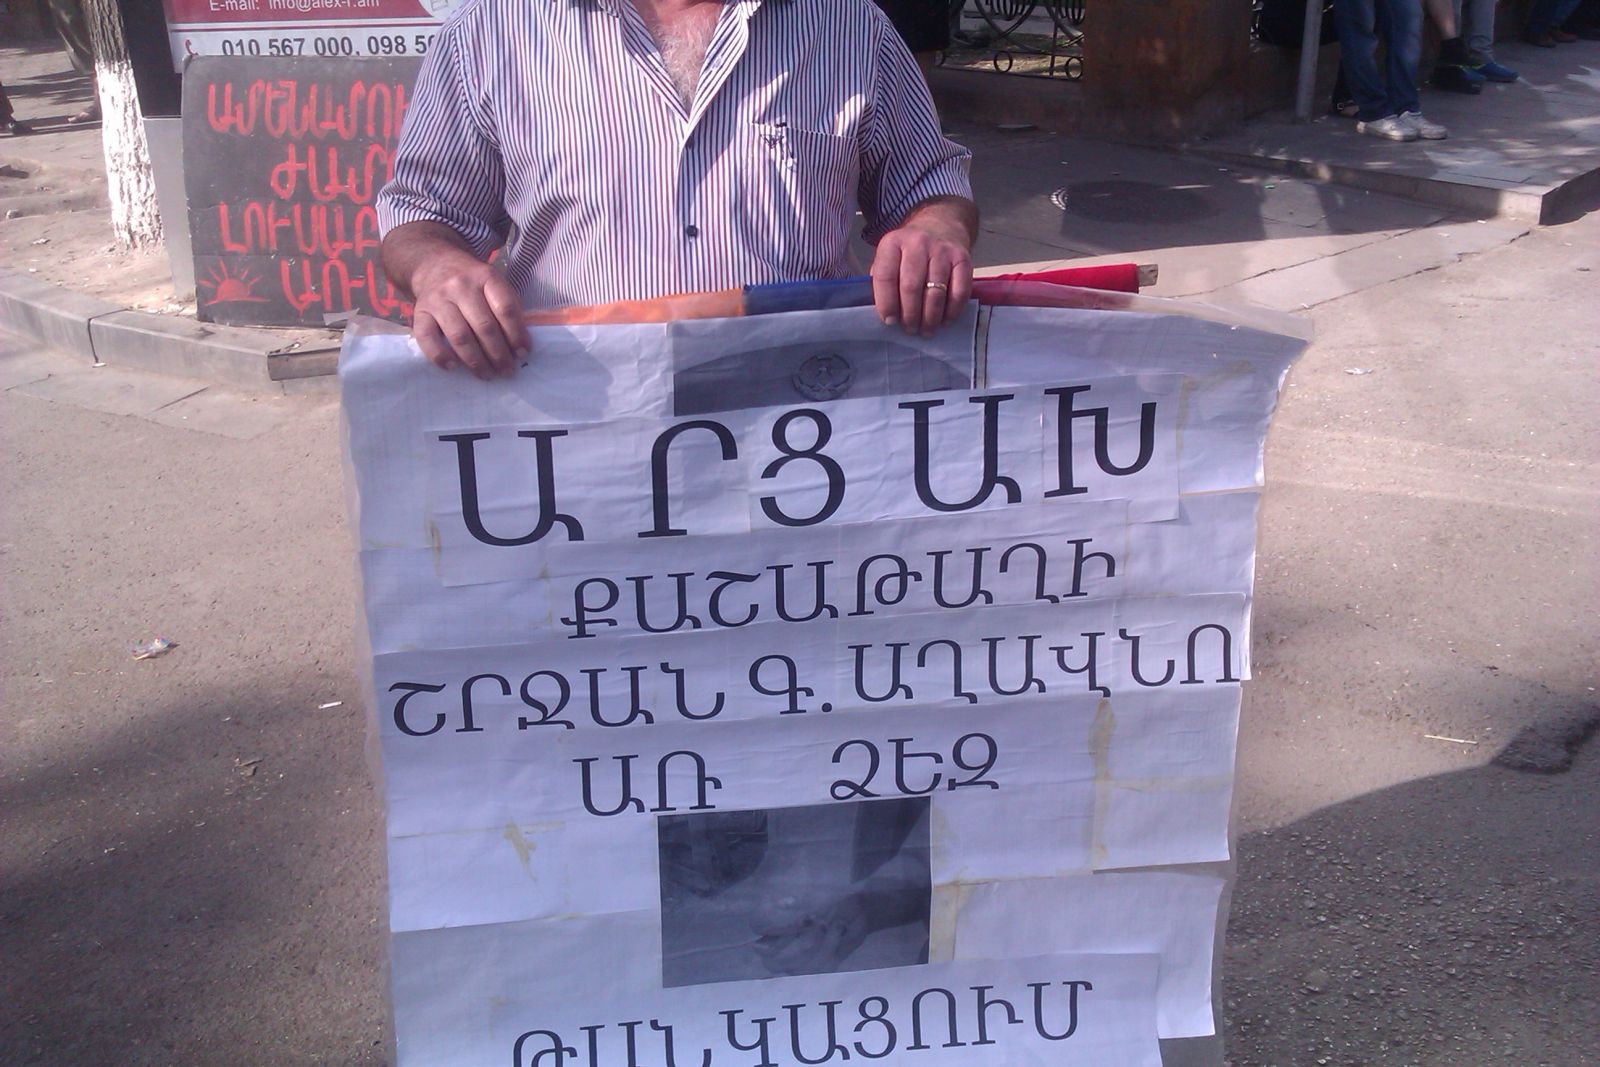 E-mail: info@alex-r.am
010 567 000, 098 5
ԱՄԵՆԱՄՈՒ
ԺԱՄ
ԼՈՒՍԱԲ
ԱՌԱ
ԱՐՑԱԽ
ՔԱՇԱԹԱՂԻ
ՇՐՋԱՆ Գ. ԱՂԱՎՆՈ
ԱՌ ՁԵԶ
ԹԱՆԿԱՑՈՒՄ